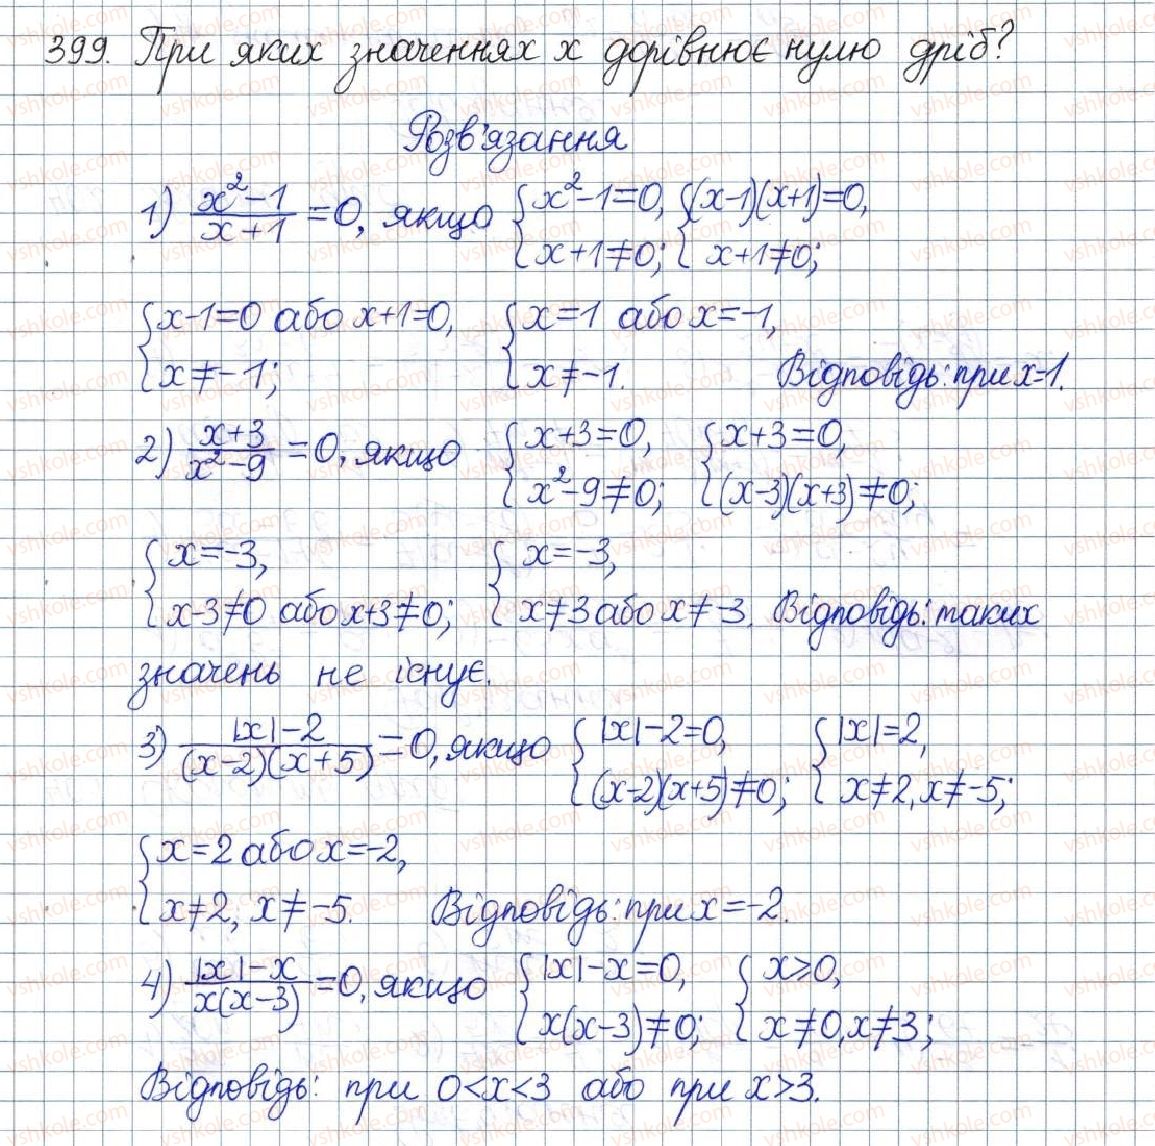 399. При яких значеннях x дорівнює нулю дріб?
Розв'язання
1) (x²-1)/(x+1) = 0, якщо { x²-1=0, x+1≠0; { (x-1)(x+1)=0, x+1≠0;
{ x-1=0 або x+1=0, x≠-1; { x=1 або x=-1, x≠-1. Відповідь: при x=1.
2) (x+3)/(x²-9) = 0, якщо { x+3=0, x²-9≠0; { x+3=0, (x-3)(x+3)≠0;
{ x=-3, x-3≠0 або x+3≠0; { x=-3, x≠3 або x≠-3. Відповідь: таких
значень не існує.
3) (|x|-2)/((x-2)(x+5)) = 0, якщо { |x|-2=0, (x-2)(x+5)≠0; { |x|=2, x≠2, x≠-5;
{ x=2 або x=-2, x≠2, x≠-5. Відповідь: при x=-2.
4) (|x|-x)/(x(x-3)) = 0, якщо { |x|-x=0, x(x-3)≠0; { x≥0, x≠0, x≠3;
Відповідь: при 0<x<3 або при x>3.
vshkole.com